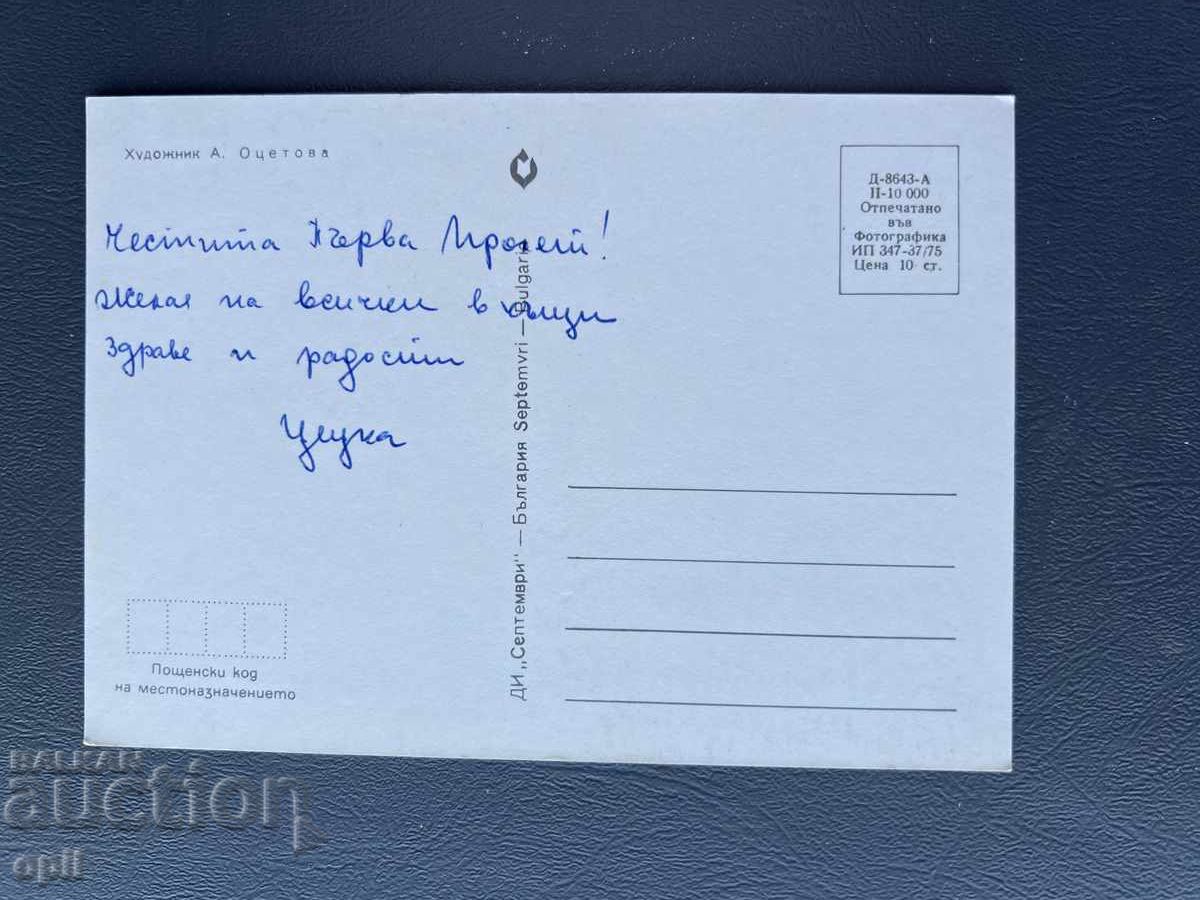 Художник А. Оцетова
Честита Първа Пролет!
Желая на всички в къщи
Здраве и радост
Цецка
Пощенски код
на местоназначението
ДИ „Септември" — България Septemvri — Bulgaria
Д-8643-А
II-10 000
Отпечатано
във
Фотографика
ИП 347-37/75
Цена 10 ст.
BALKAN
auction
opll